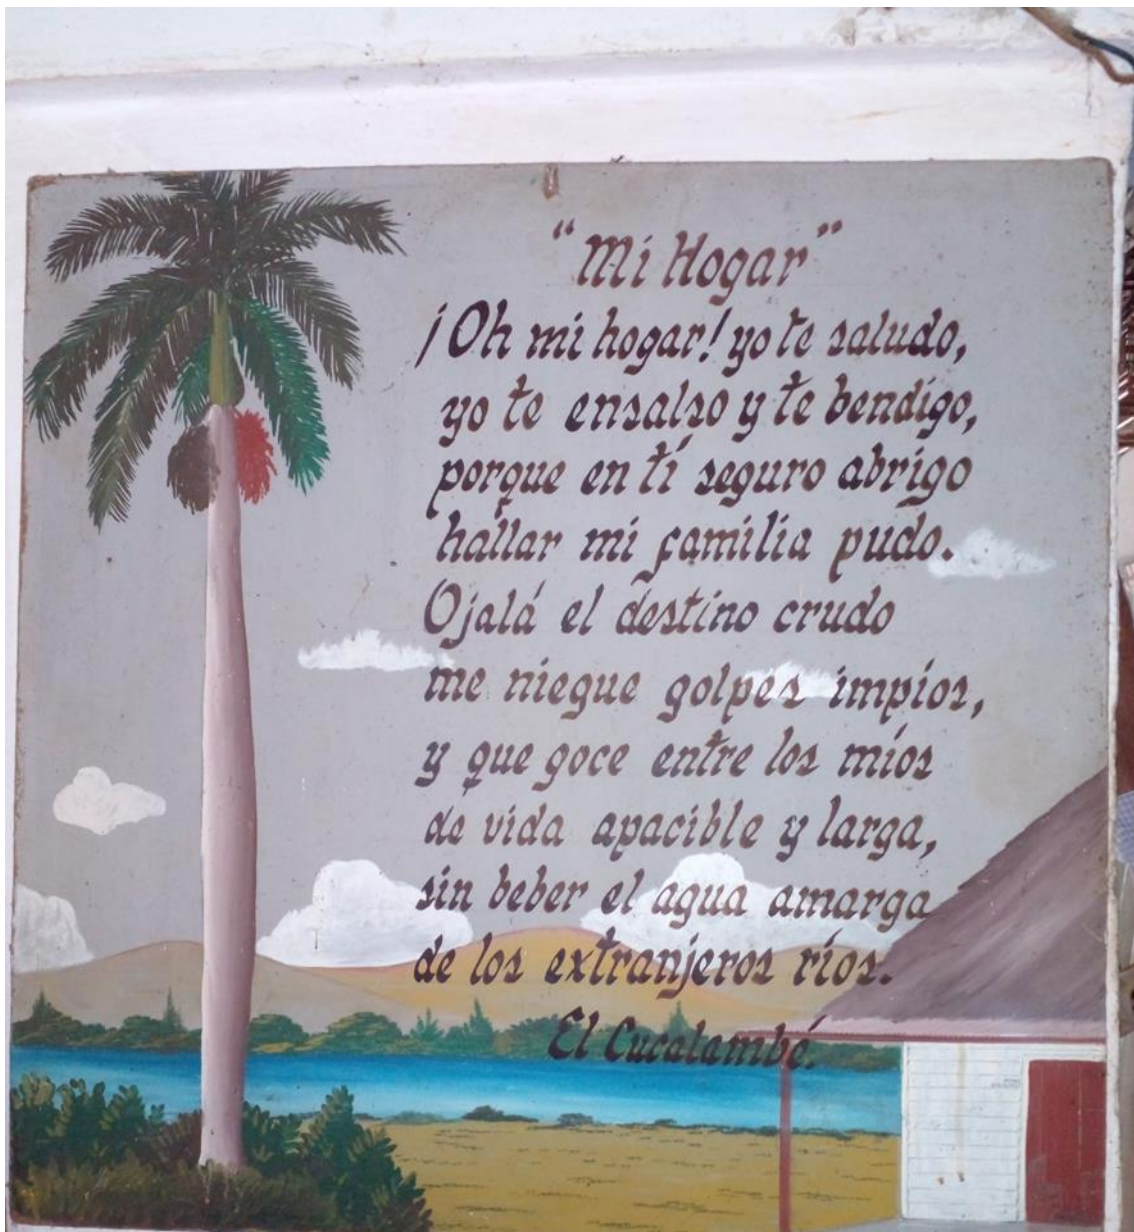 “Mi Hogar”
¡Oh mi hogar! yo te saludo,
yo te ensalso y te bendigo,
porque en tí seguro abrigo
hallar mi familia pudo.
Ojalá el destino crudo
me niegue golpes impíos,
y que goce entre los míos
de vida apacible y larga,
sin beber el agua amarga
de los extranjeros ríos.
El Cucalambé.